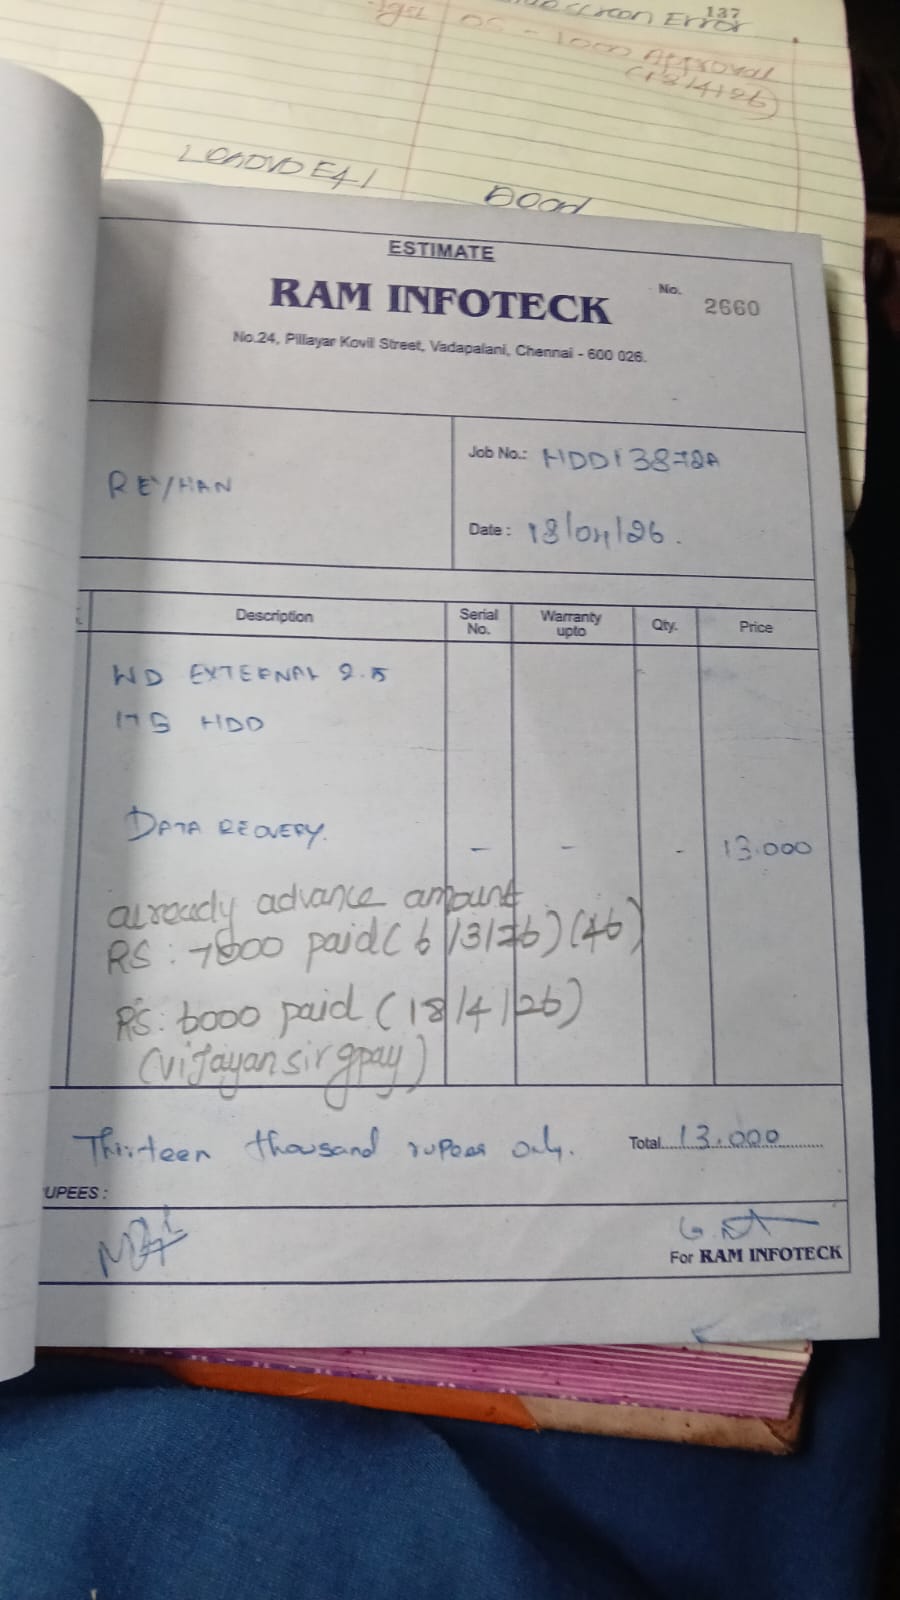 screen Error
137
os - 1000 Approval
(18/4/26)
LENOVO E41
DOOd
ESTIMATE
RAM INFOTECK
No. 2660
No.24, Pillayar Kovil Street, Vadapalani, Chennai - 600 026.
REYHAN
Job No.: HDD13872A
Date : 18/04/26.
Description Serial No. Warranty upto Qty. Price
WD EXTERNAL 2.5
1TB HDD
DATA REOVERY. - - - 13.000
already advance amount
RS: 7000 paid (6/3/26) (46)
RS: 6000 paid (18/4/26)
(vijayan sir gpay)
Thirteen thousand rupees only. Total 13.000
UPEES :
For RAM INFOTECK